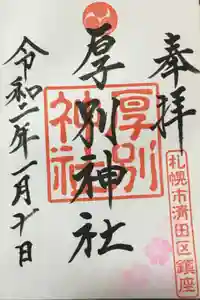 奉拝
札幌市清田区鎮座
厚別神社
厚別
神社
令和二年一月十日